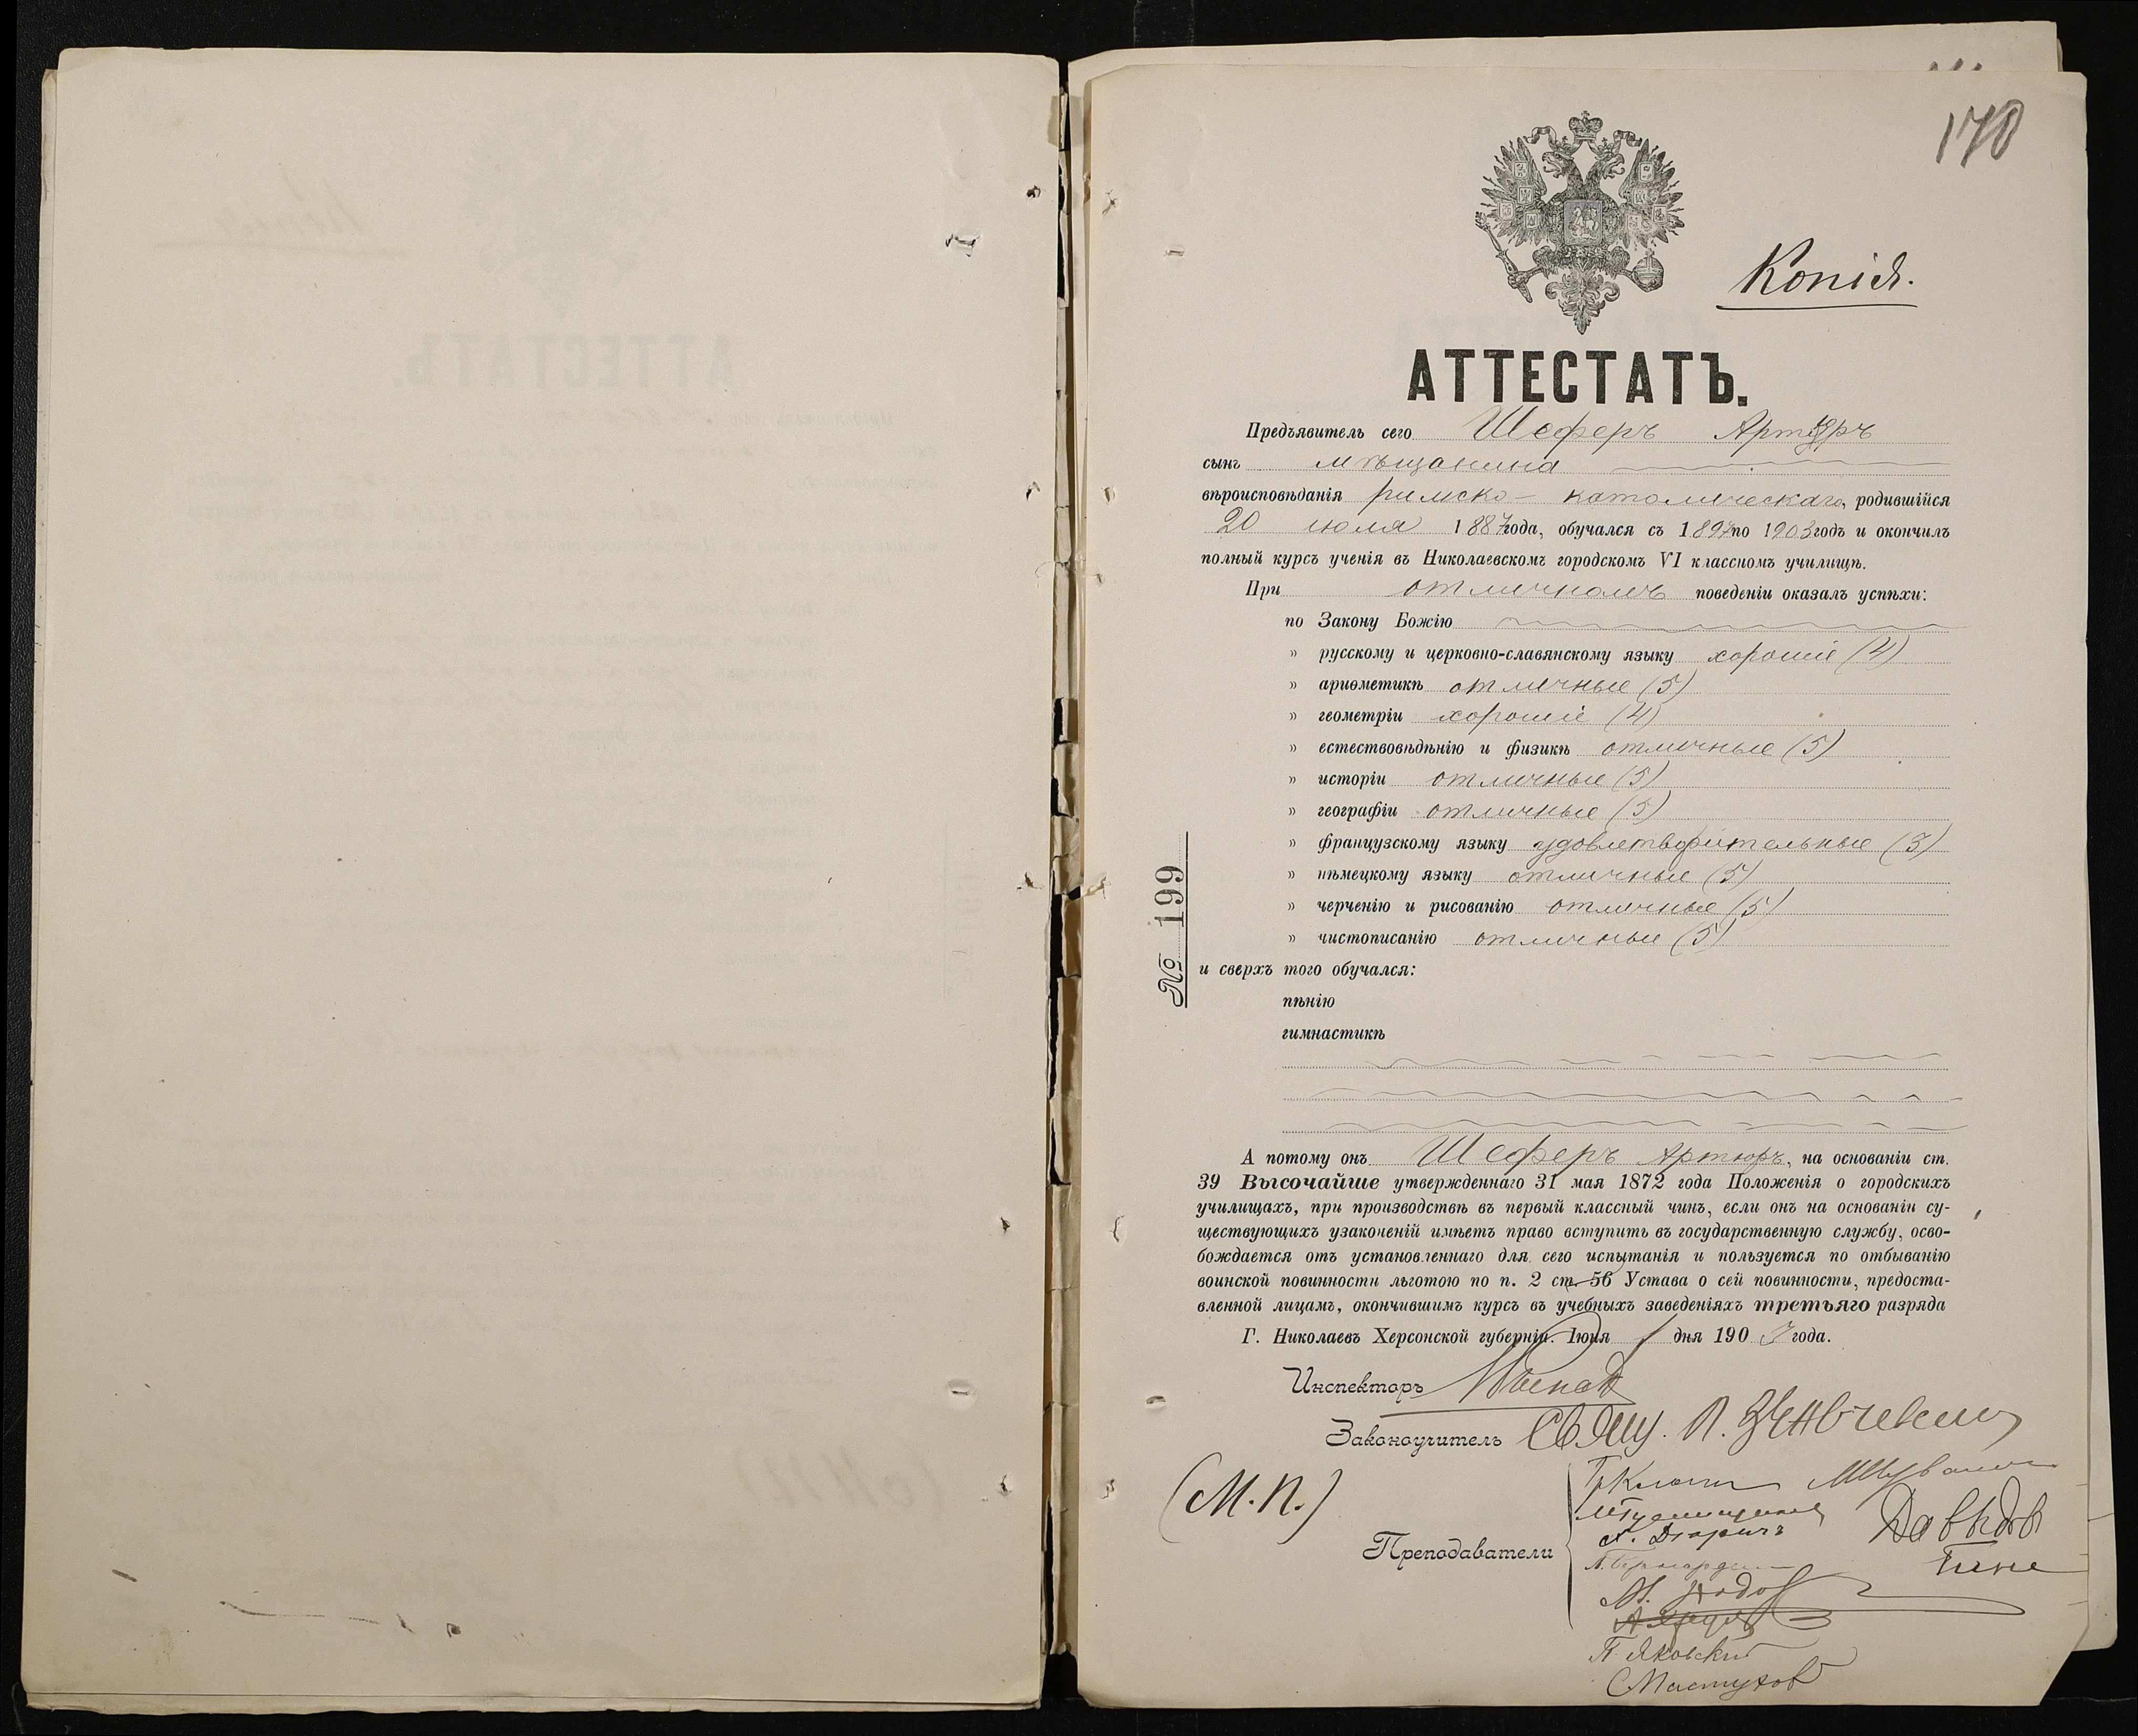 170
Копія.
АТТЕСТАТЪ.
Предъявитель сего Шеферъ Артюръ
сынъ мѣщанина
вѣроисповѣданія римско-католическаго, родившійся
20 іюля 1887 года, обучался съ 1897 по 1903 годъ и окончилъ
полный курсъ ученія въ Николаевскомъ городскомъ VI классномъ училищѣ.
При отличномъ поведеніи оказалъ успѣхи:
по Закону Божію
» русскому и церковно-славянскому языку хорошіе (4)
» ариѳметикѣ отличные (5)
» геометріи хорошіе (4)
» естествовѣдѣнію и физикѣ отличные (5)
» исторіи отличные (5)
» географіи отличные (5)
» французскому языку удовлетворительные (3)
» нѣмецкому языку отличные (5)
» черченію и рисованію отличные (5)
» чистописанію отличные (5)
№ 199
и сверхъ того обучался:
пѣнію
гимнастикѣ
А потому онъ Шеферъ Артюръ, на основаніи ст.
39 Высочайше утвержденнаго 31 мая 1872 года Положенія о городскихъ
училищахъ, при производствѣ въ первый классный чинъ, если онъ на основаніи су-
ществующихъ узаконеній имѣетъ право вступить въ государственную службу, осво-
бождается отъ установленнаго для сего испытанія и пользуется по отбыванію
воинской повинности льготою по п. 2 ст. 56 Устава о сей повинности, предоста-
вленной лицамъ, окончившимъ курсъ въ учебныхъ заведеніяхъ третьяго разряда
Г. Николаевъ Херсонской губерніи. Іюня 1 дня 1903 года.
Инспекторъ
Законоучитель Свящ. П.
(М.П.)
Преподаватели
Давыдов
П. Яковскій
С Пастухов